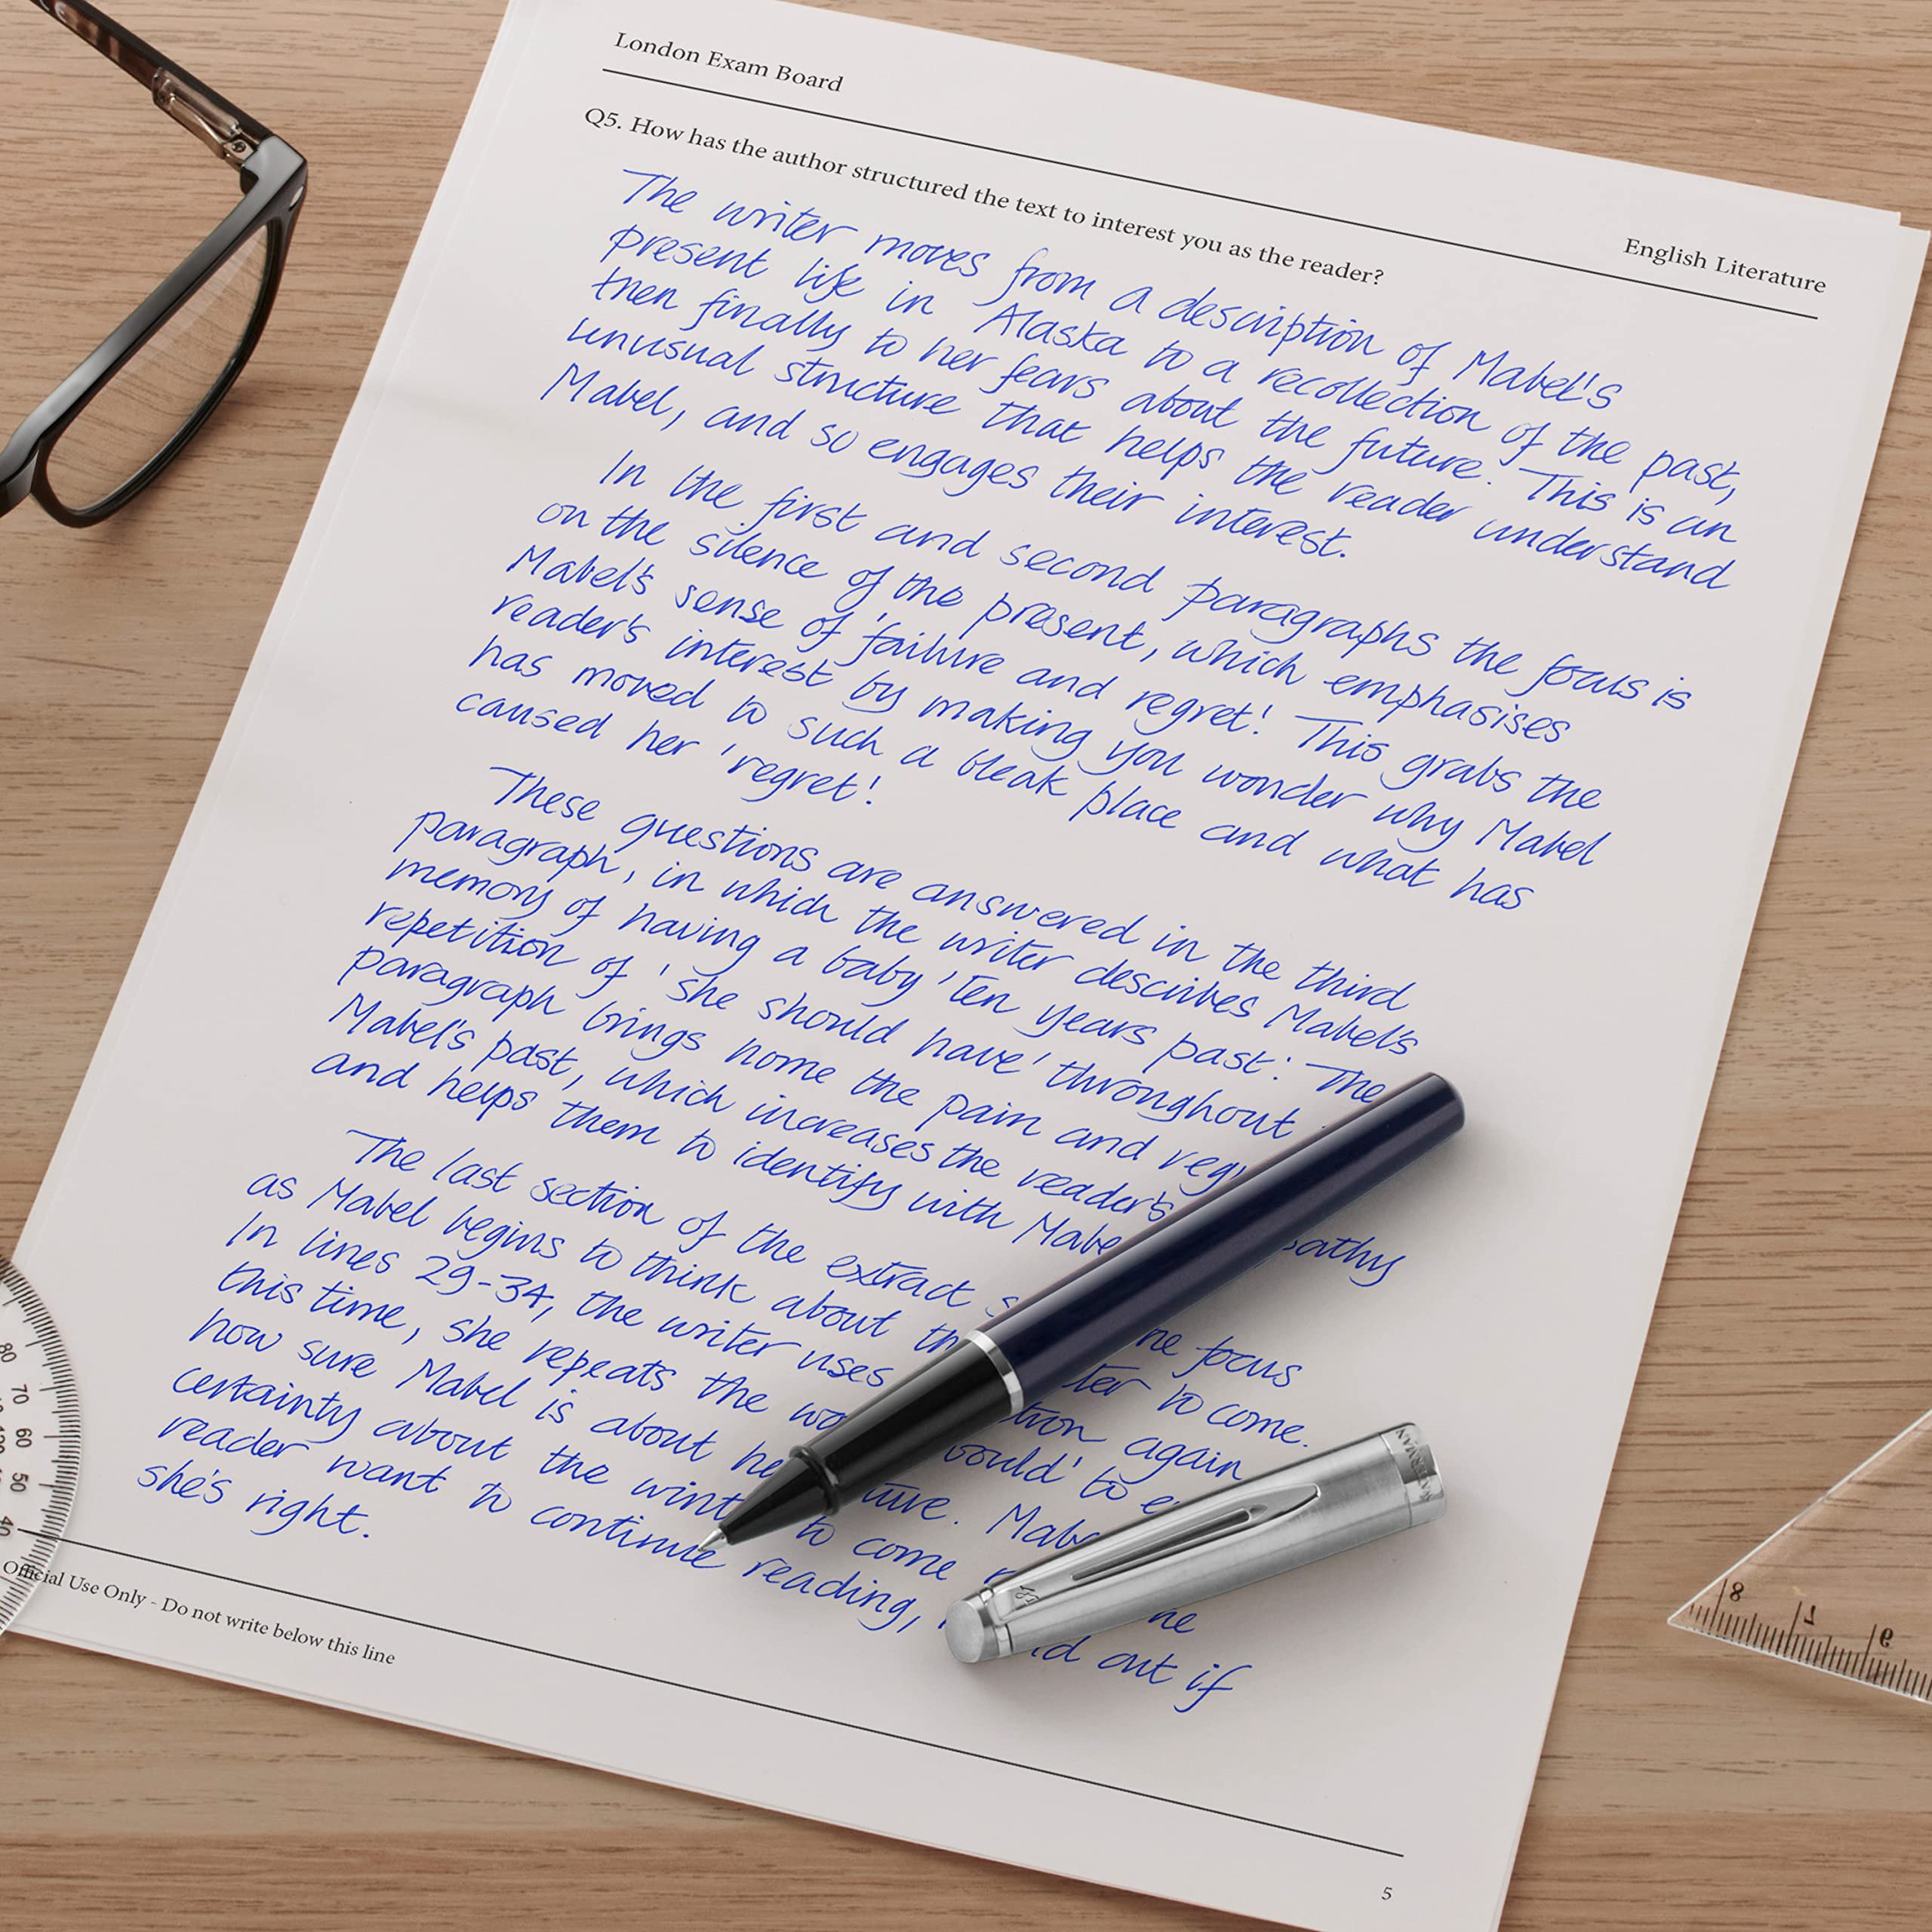 London Exam Board
English Literature
Q5. How has the author structured the text to interest you as the reader?
The writer moves from a description of Mabel's
present life in Alaska to a recollection of the past,
then finally to her fears about the future. This is an
unusual structure that helps the reader understand
Mabel, and so engages their interest.
In the first and second paragraphs the focus is
on the silence of the present, which emphasises
Mabel's sense of 'failure and regret'. This grabs the
reader's interest by making you wonder why Mabel
has moved to such a bleak place and what has
caused her 'regret'.
These questions are answered in the third
paragraph, in which the writer describes Mabel's
memory of having a baby 'ten years past'. The
repetition of 'she should have' throughout
paragraph brings home the pain and reg
Mabel's past, which increases the reader's pathy
and helps them to identify with Mabe
The last section of the extract s he focus
as Mabel begins to think about th ter to come.
In lines 29-34, the writer uses tion again
this time, she repeats the wo would' to e
how sure Mabel is about he ture. Mabe
certainty about the wint to come he
reader want to continue reading, nd out if
she's right.
Official Use Only - Do not write below this line
5
WATERMAN
80
70
60
50
40
8
7
6